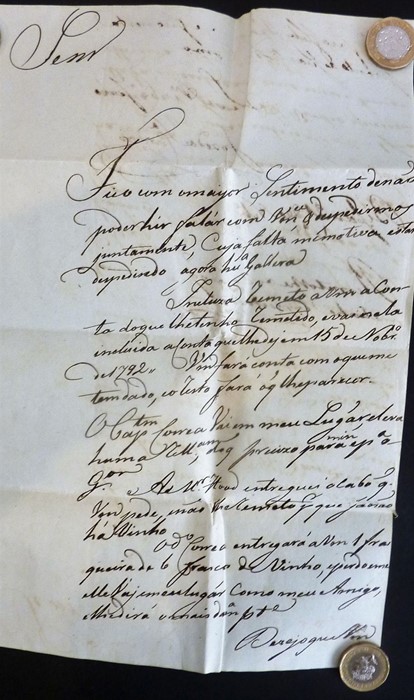 Senr
Fico com o mayor Sentimento de não
poder hir falár com Vmce e despedirmos
juntamente, Cuja falta me motiva estar
despedindo agora hua Gallera
Incluza Remeto a Vm a Con
ta do que lhe tenho Remetido, e vai nela
incluida a conta que lhe dey em 15 de Nobro
de 1792. Vm fará conta com o que me
tem dado, e o resto fará o q lhe parecer.
O Capm Correa Vai em meu Lugár, e leva
huma precizo para
A Mr Hood entreguei o Cabo q
Vm pede, mas não Remeto q que já não
há Vinho
O do Correa entregará a Vm 1 fras
queira de 6 frasco de Vinho,
elle Vai em meu lugár Como meu Amigo,
e lhe dirá o mais da ma pte
Dezejo que Vm